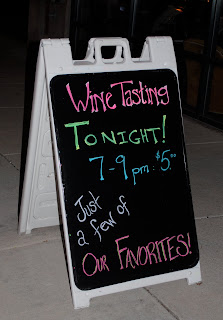 Wine Tasting
TONIGHT!
7-9pm : $5.00
Just
a few of
OUR FAVORITES!